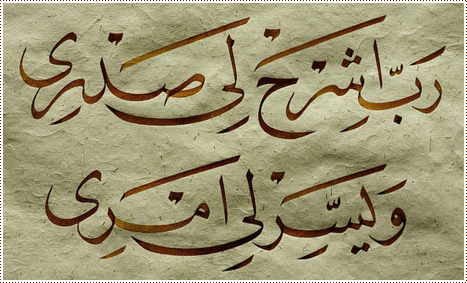 رَبِّ اشْرَحْ لِی صَدْرِی
وَیَسِّرْ لِی اَمْرِی